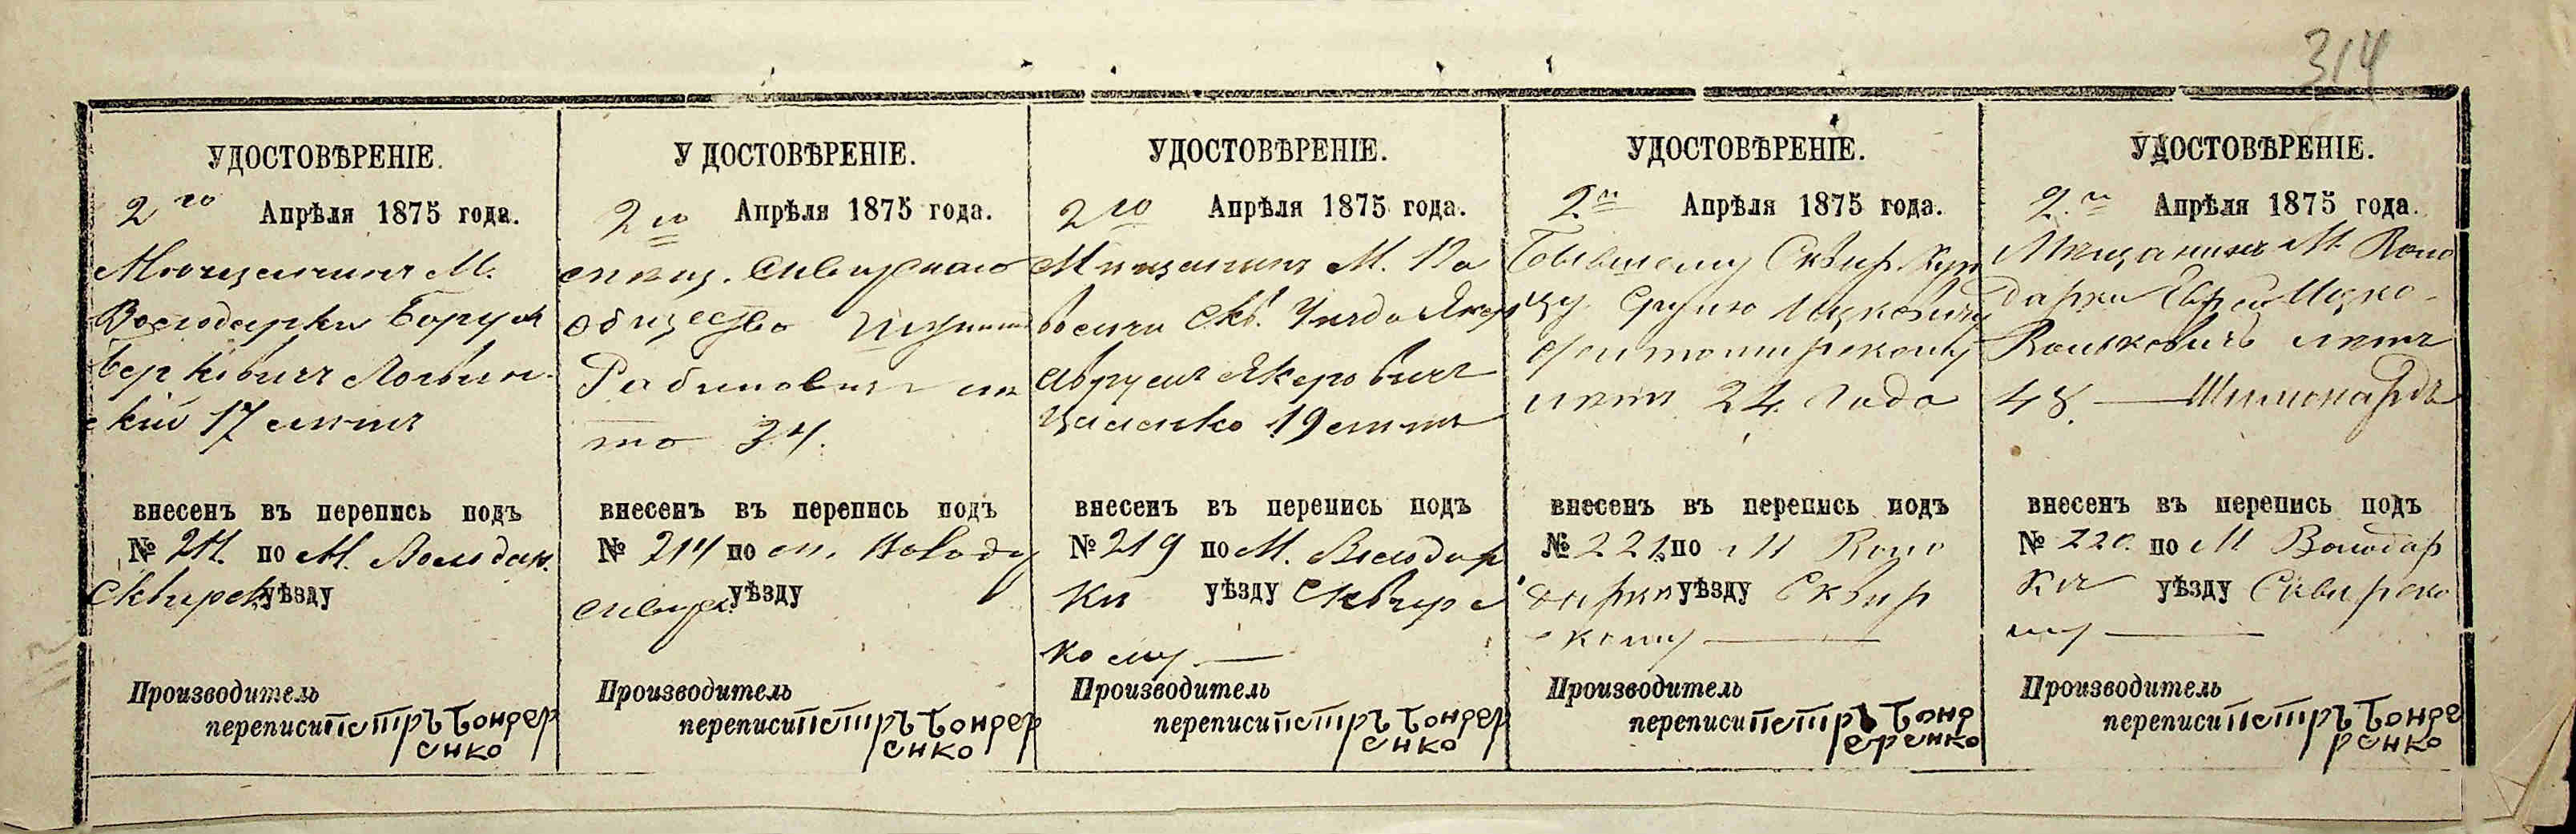 314
УДОСТОВѢРЕНІЕ.
2го Апрѣля 1875 года.
Мѣщанинъ М.
Володарки Борухъ
Берковичъ
скій 17 лѣтъ
внесенъ въ перепись подъ
№ по М. Володар.
Сквирск уѣзду
Производитель
переписи Петръ Бондер
енко
УДОСТОВѢРЕНІЕ.
2го Апрѣля 1875 года.
мѣщ. Сквирскаго
общество
Рабиновичъ лѣ
то 34.
внесенъ въ перепись подъ
№ 214 по м. Волода
сквирс уѣзду
Производитель
переписи Петръ Бондер
енко
УДОСТОВѢРЕНІЕ.
2го Апрѣля 1875 года.
Мѣщанинъ М. Па
волочи Скв.
Аврумъ Якеровичъ
19 лѣтъ
внесенъ въ перепись подъ
№ 219 по М. Володар
ки уѣзду Сквирс
кому —
Производитель
переписи Петръ Бондер
енко
УДОСТОВѢРЕНІЕ.
2го Апрѣля 1875 года.
Бывшему Сквир. Куп
цу Срулю Ицковичу
Житомирскому
лѣтъ 24. года
внесенъ въ перепись подъ
№ 221. по М Воло
дарки уѣзду Сквир
скому —
Производитель
переписи Петръ Бонд
еренко
УДОСТОВѢРЕНІЕ.
2.го Апрѣля 1875 года.
Мѣщанинъ М. Воло
дарки Еврей Ицко-
Вольковичъ лѣтъ
48. —
внесенъ въ перепись подъ
№ 220. по М Володар
ки уѣзду Сквирско
му —
Производитель
переписи Петръ Бонде
ренко